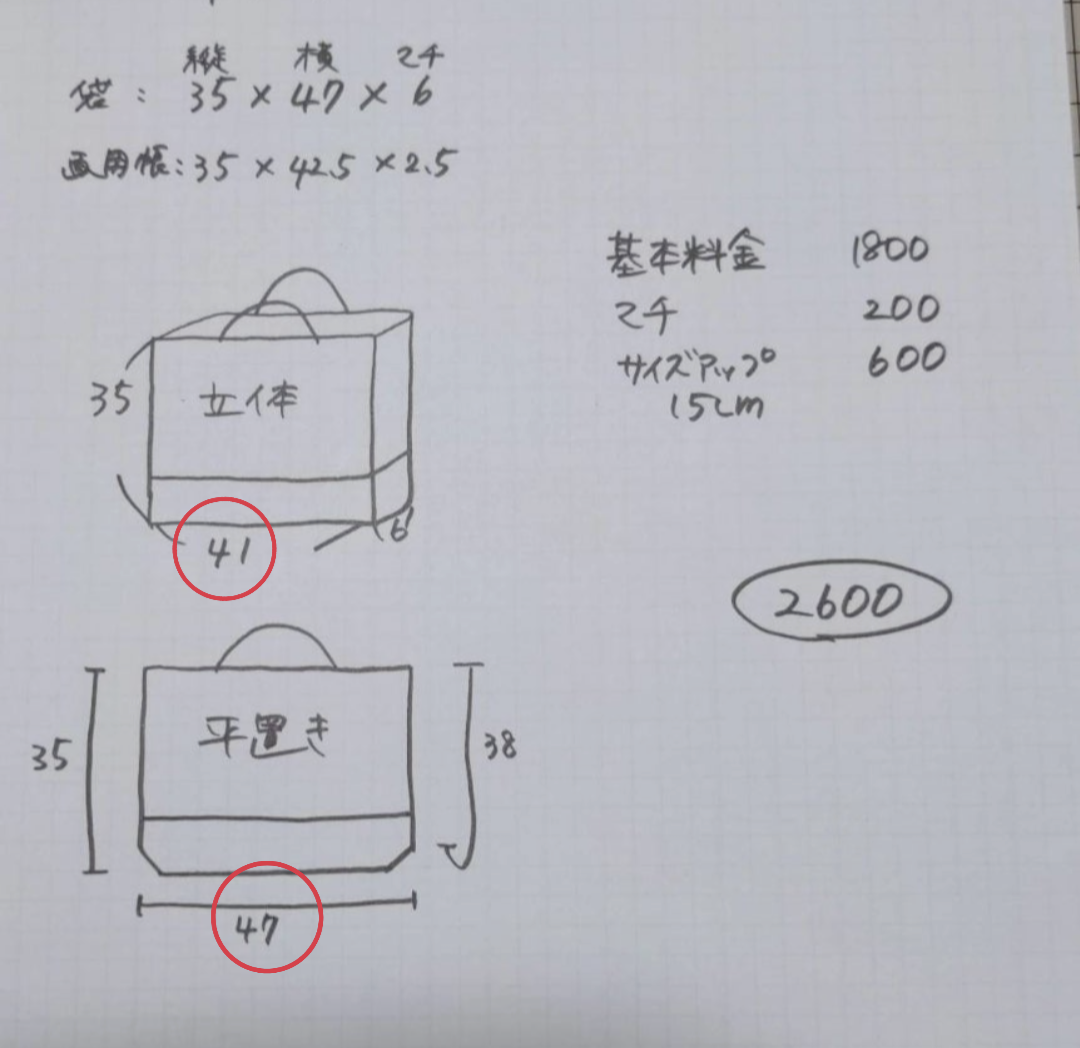 縦 横 マチ
袋: 35 × 47 × 6
画用帳: 35 × 42.5 × 2.5
基本料金 1800
マチ 200
サイズアップ 600
15cm
35
立体
41
6
2600
平置き
35
38
47